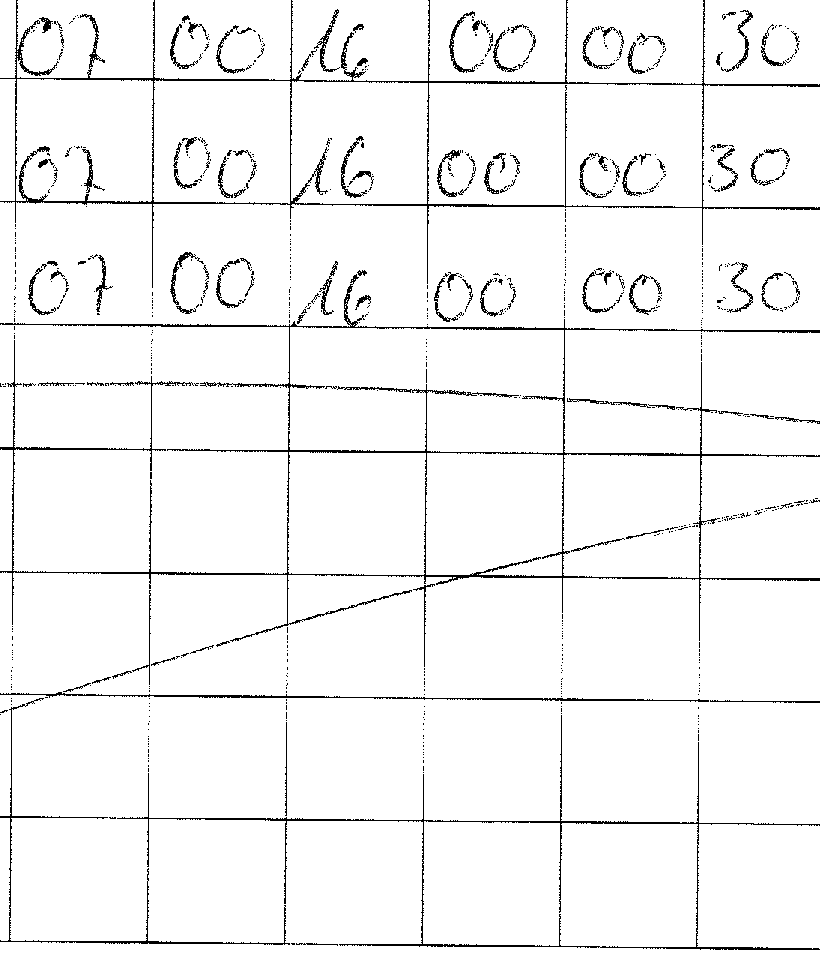 07 00 16 00 00 30
07 00 16 00 00 30
07 00 16 00 00 30